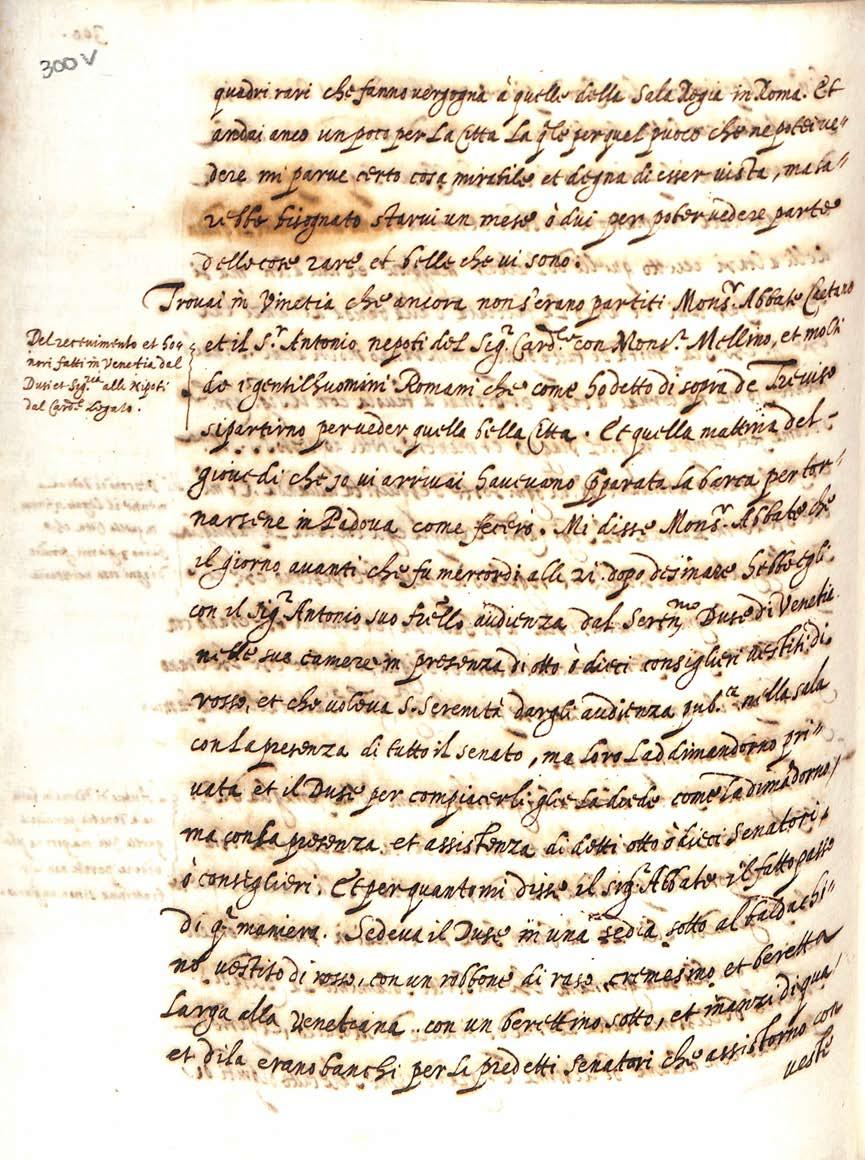 300 V
quadri rari che fanno vergogna à quelle della Sala Regia in Roma. Et
andai anco un poco per La Citta La qle per quel puoco che ne potei ve"
dere mi parue certo cosa mirabile et degna di esser uista, ma sa"
rebbe bisognato starui un mese ò dui per poter vedere parte
delle cose rare et belle che vi sono.
Trouai in Vinetia che ancora non s'erano partiti Monsr. Abbate Caetano
et il Sr. Antonio, nepoti del Sigr. Cardle con Monsr. Mellino, et molti
de i gentilhuomini Romani che come ho detto di sopra de Treviso
si partirno per veder quella bella Citta. Et quella mattina del -
giouedi che io vi arrivai havevano pparata La barca per tor"
narsene in Padova come fecero. Mi disse Monsr. Abbate che
il giorno avanti che fu mercordi alli 21. dopo desinare hebbe egli
con il Sigr. Antonio suo frello audienza dal Serenmo Duse di Venetia
nelle sue camere in presenza di otto ò dieci consiglieri vestiti di
rosso, et che voleva S. Serenità dargli audienza pub.ca nella sala
con La presenza di tutto il senato, ma loro La ddimandorno pri"
vata et il Duse per compiacerli glie La diede come La dimãdorno/
ma con La presenza et assistenza di detti otto ò dieci Senatori,
ò consiglieri. Et per quanto mi disse il sigr. Abbate il fatto passò
di qª maniera. Sedeva il Duse in una sedia sotto al baldachi"
no vestito di rosso, con un robbone di raso cremesino et beretta
Larga alla Venetiana con un berettino sotto, et inanzi di qua/
et di la erano banchi per li predetti senatori che assistorno con
veste
Del receuimento et ho-
nori fatti in Venetia dal
Duse et Sig.ria alli Nipoti
del Cardle Legato.